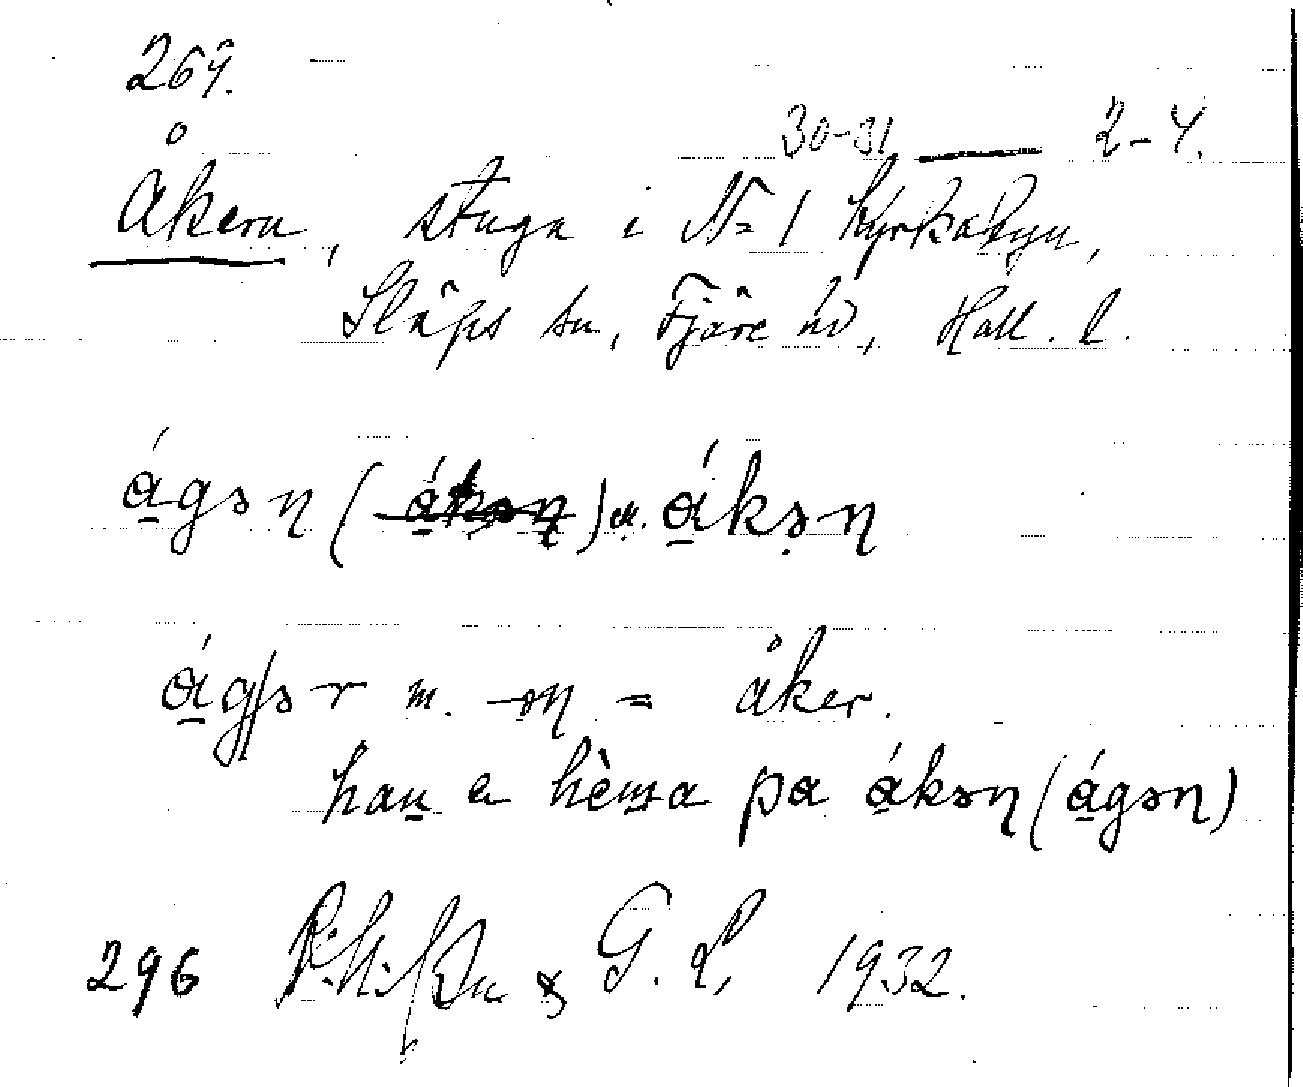 269.
30-31 — 2-4.
Åkern, stuga i N= 1 Kyrkobyn,
Släps sn, Fjäre hd, Hall. l.
ágən ( ) el. ákən
ágər m. -ən = åker.
han e hèma pa ákən (ágən)
296 & G. L. 1932.